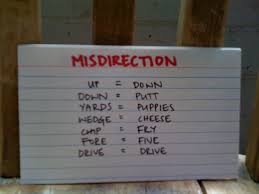 MISDIRECTION
UP = DOWN
DOWN = PUTT
YARDS = PUPPIES
WEDGE = CHEESE
CHIP = FRY
FORE = FIVE
DRIVE = DRIVE